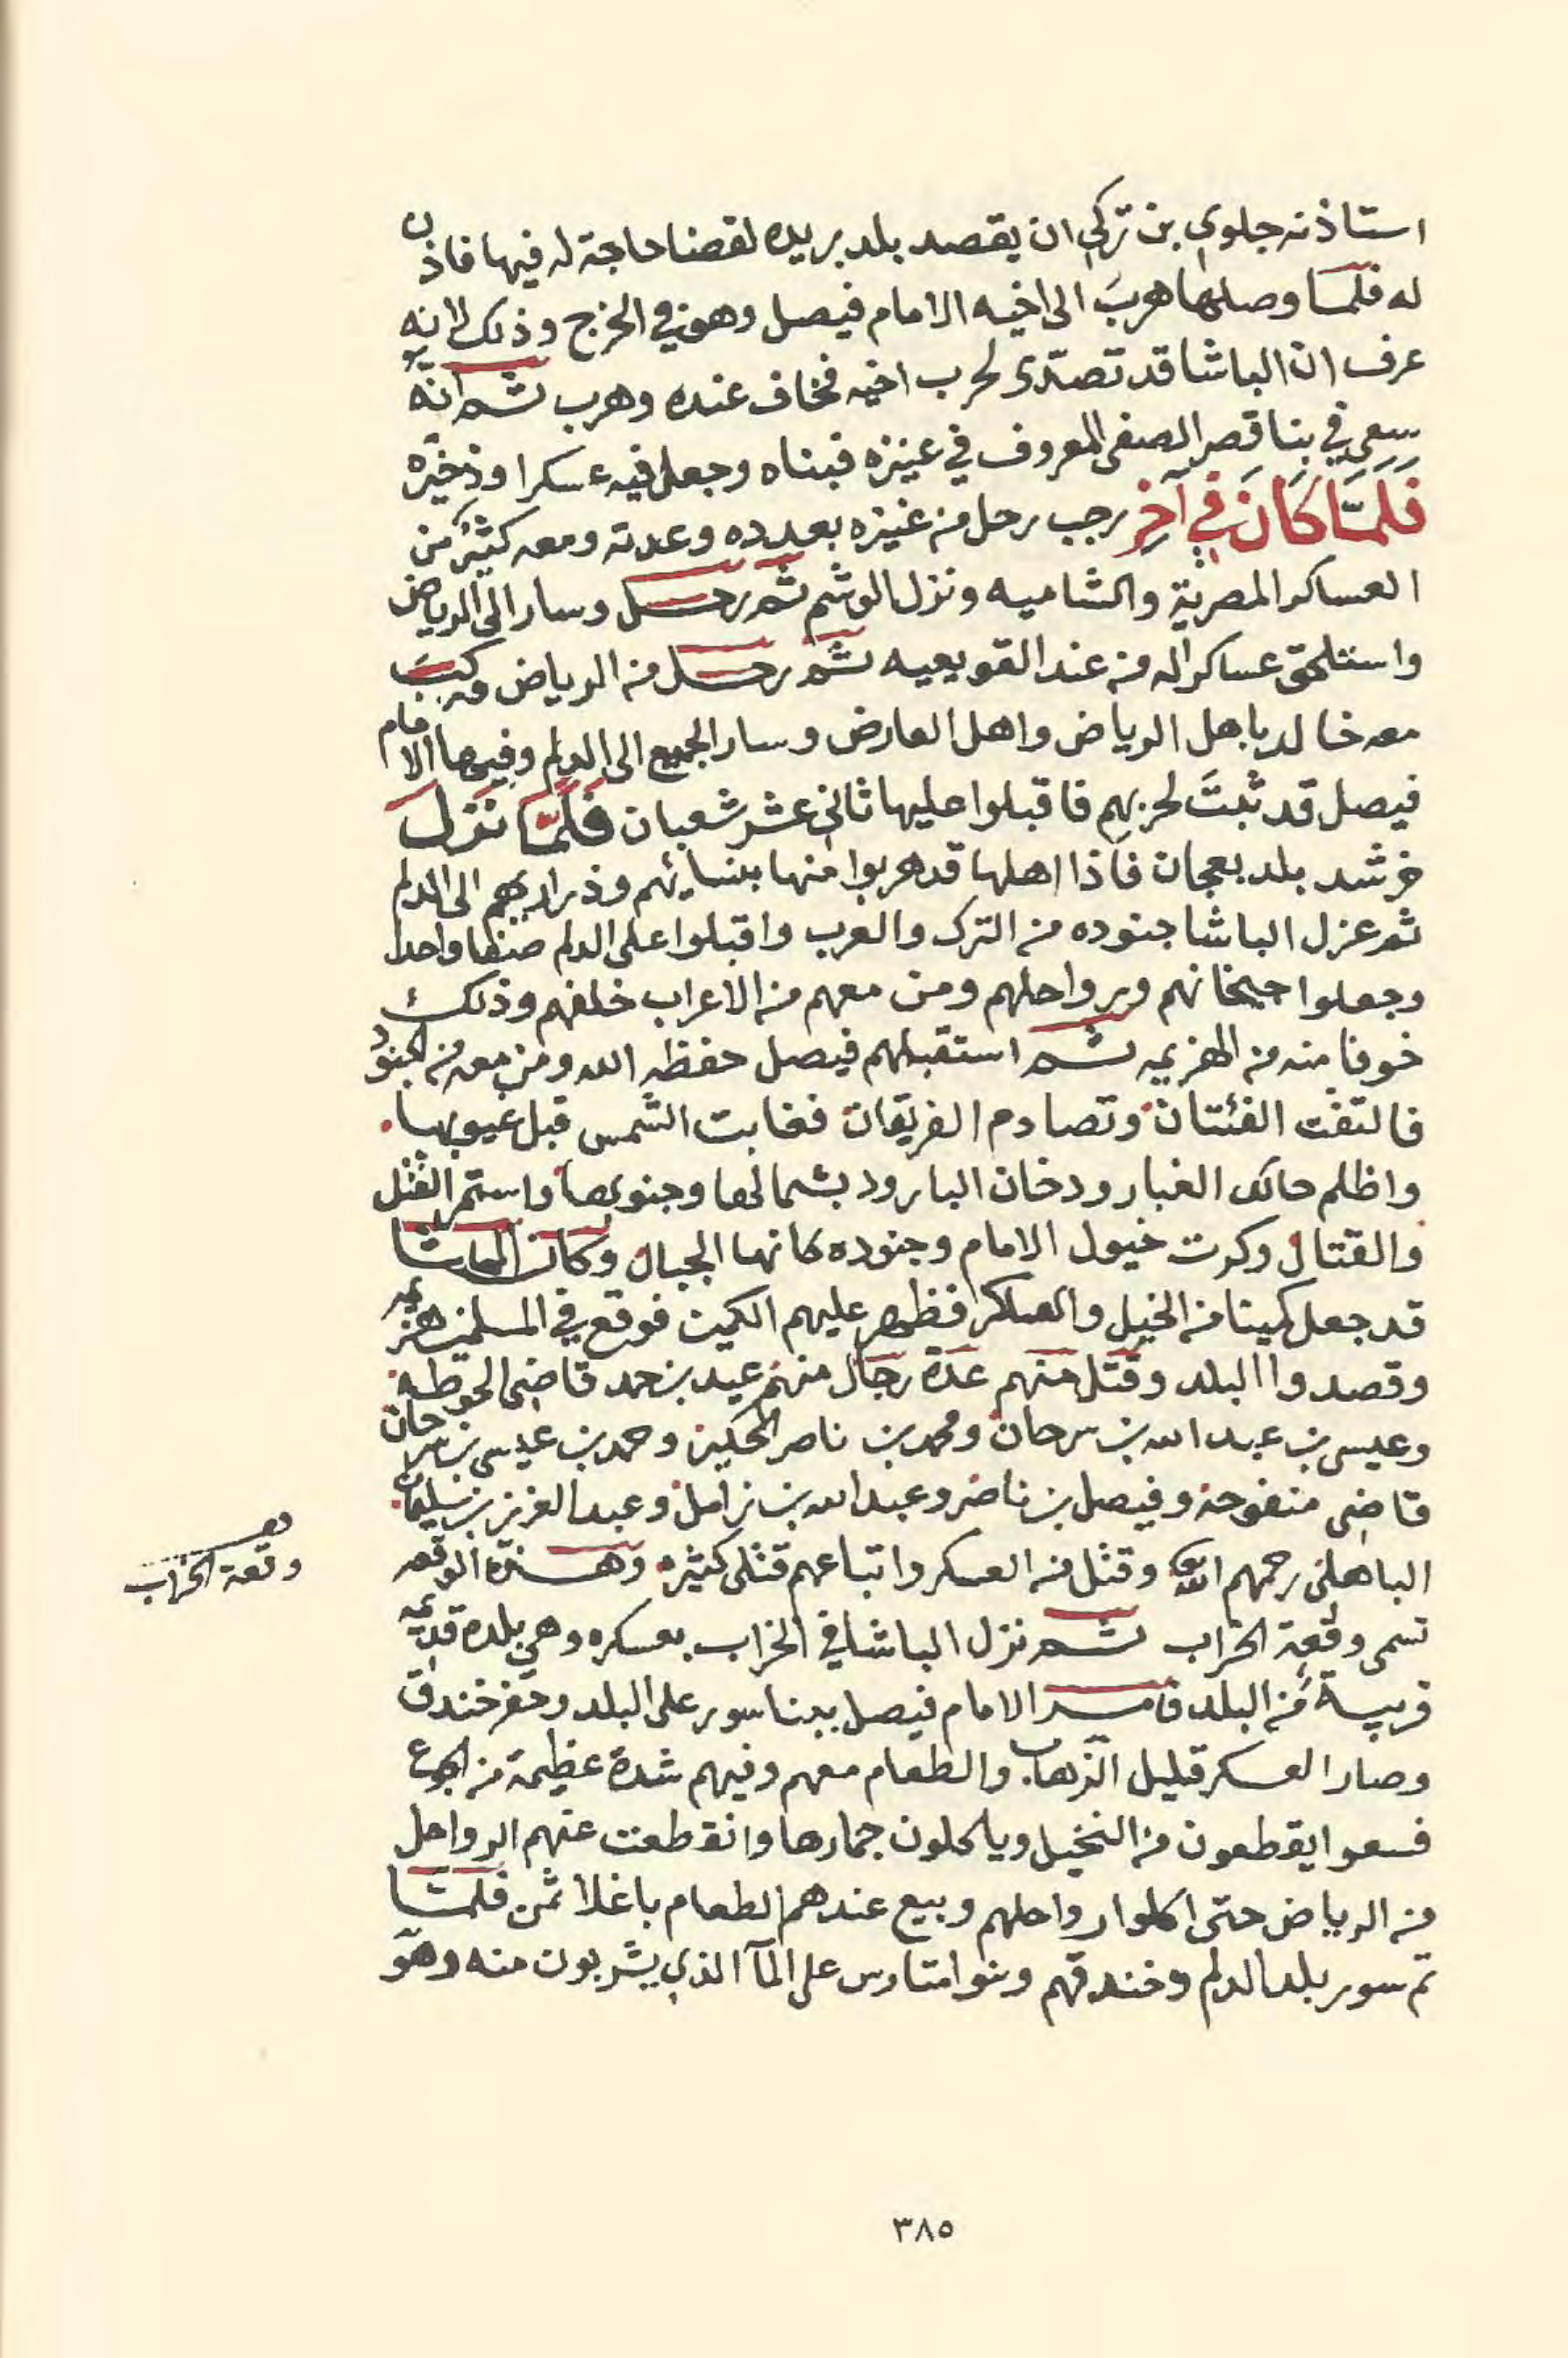 استاذنه جلوي بن تركي ان يقصد بلد بريده لقضا حاجة له فيها فاذن
له فلما وصلها هرب الى اخيه الامام فيصل وهو في الخرج وذلك لانه
عرف ان الباشا قد تصدى لحرب اخيه فخاف عنده وهرب ثم انه
سعى في بنا قصر الصفى المعروف في عنيزه فبناه وجعل فيه عسكرا وذخيره
فَلَمَّا كَانَ فِي آخِرِ رجب رحل من عنيزه بعدده وعدته ومعه كثير من
العساكر المصرية والشاميه ونزل الوشم ثم رحل وسار الى الرياض
واستلحق عساكر اله من عند القويعيه ثم رحل من الرياض وركب
معه خالد باهل الرياض واهل العارض وسار الجميع الى الدلم وفيها الامام
فيصل قد ثبت لحربهم فاقبلوا عليها ثاني عشر شعبان فلما نزل
خرشد بلد نعجان فاذا اهلها قد هربوا منها بنسائهم وذراريهم الى الدلم
ثم عزل الباشا جنوده من الترك والعرب واقبلوا على الدلم صفا واحدا
وجعلوا جبخانهم ورواحلهم ومن معهم من الاعراب خلفهم وذلك
خوفا منه من الهزيمه ثم استقبلهم فيصل حفظه الله ومن معه من الجنود
فالتقت الفئتان وتصادم الفريقان فغابت الشمس قبل غيوبها
واظلم حالك الغبار ودخان البارود بشمالها وجنوبها واستمر القتل
والقتال وكرت خيول الامام وجنوده كانها الجبال وكان الباشا
قد جعل كمينا من الخيل والعسكر فظهر عليهم الكمين فوقع في المسلمين هزيمه
وقصدوا البلد وقتل منهم عدة رجال منهم عيد بن حمد قاضي الحوطه
وعيسى بن عبدالله بن سرحان ومحمد بن ناصر الحكير وحمد بن عيسى بن سرحان
قاضي منفوحة وفيصل بن ناصر وعبدالله بن زامل وعبدالعزيز بن سليمان
الباهلي رحمهم الله وقتل من العسكر واتباعهم قتلى كثيره وهذه الوقعه
تسمى وقعة الخراب ثم نزل الباشا في الخراب بعسكره وهي بلدة قديمه
قريبة من البلد فامر الامام فيصل ببنا سور على البلد وحفر خندق
وصار العسكر قليل الزهاب والطعام معهم وفيهم شدة عظيمة من الجوع
فسعوا يقطعون من النخيل وياكلون جمارها وانقطعت عنهم الرواحل
من الرياض حتى اكلوا رواحلهم وبيع عندهم الطعام باغلا ثمن فلما
تم سور بلد الدلم وخندقهم وبنوا متارس على المآ الذي يشربون منه وهو
وقعة الخراب
٣٨٥